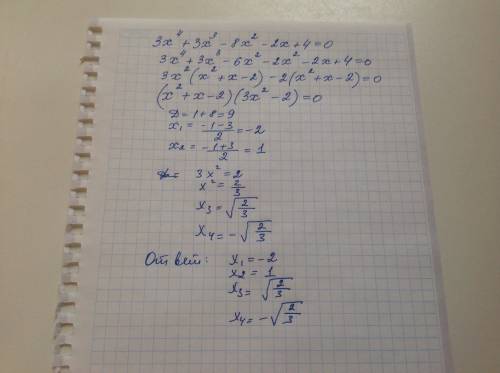 3x⁴+3x³-8x²-2x+4=0
3x⁴+3x³-6x²-2x²-2x+4=0
3x²(x²+x-2)-2(x²+x-2)=0
(x²+x-2)(3x²-2)=0
D=1+8=9
x₁=(-1-3)/2=-2
x₂=(-1+3)/2=1
3x²=2
x²=2/3
x₃=√(2/3)
x₄=-√(2/3)
Ответ: x₁=-2
x₂=1
x₃=√(2/3)
x₄=-√(2/3)